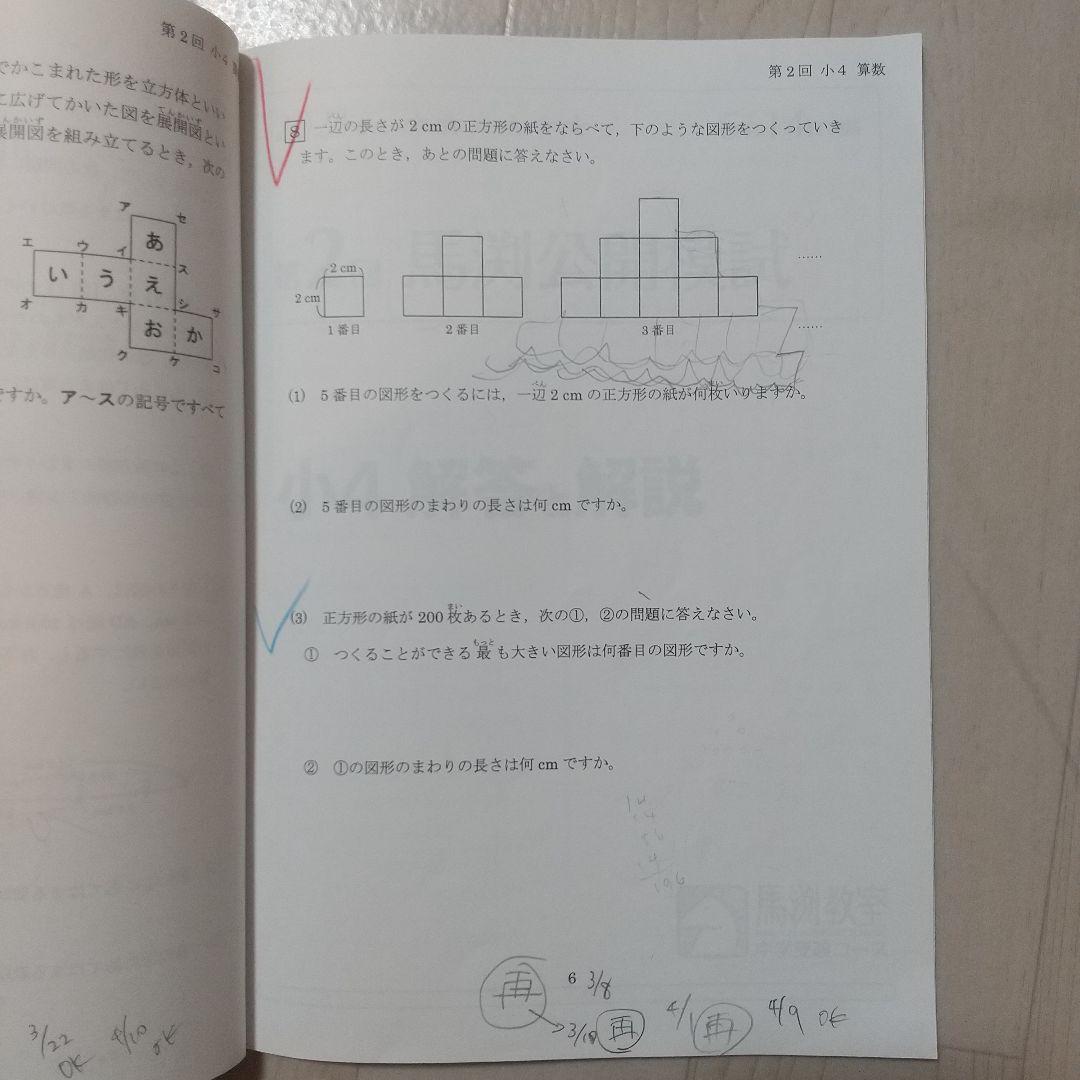 第2回 小4
でかこまれた形を立方体といい
に広げてかいた図を展開図とい
展開図を組み立てるとき，次の
ア
セ
あ
エ
ウ
イ
ス
い
う
え
オ
カ
キ
シ
サ
お
か
ク
ケ
コ
ですか。ア〜スの記号ですべて
3/22
OK
4/10
OK
第2回 小4 算数
8 一辺の長さが2cmの正方形の紙をならべて，下のような図形をつくっていき
ます。このとき，あとの問題に答えなさい。
2cm
2cm
1番目
2番目
3番目
……
……
(1) 5番目の図形をつくるには，一辺2cmの正方形の紙が何枚いりますか。
(2) 5番目の図形のまわりの長さは何cmですか。
(3) 正方形の紙が200枚あるとき，次の①，②の問題に答えなさい。
① つくることができる最も大きい図形は何番目の図形ですか。
② ①の図形のまわりの長さは何cmですか。
14
196
6
再
3/8
3/10 再
4/1 再
4/9 OK